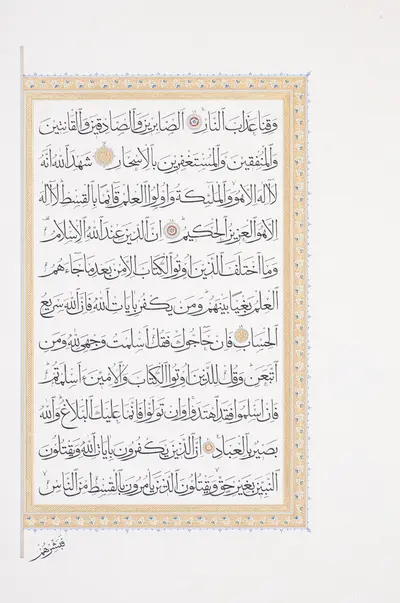 وقنا عذاب النار الصابرين والصادقين والقانتين
والمنفقين والمستغفرين بالأسحار شهد الله أنه
لا اله الا هو والملئكة واولوا العلم قائما بالقسط لا اله
الا هو العزيز الحكيم ان الدين عند الله الاسلام
وما اختلف الذين اوتوا الكتاب الا من بعد ما جاءهم
العلم بغيا بينهم ومن يكفر بايات الله فان الله سريع
الحساب فان حاجوك فقل اسلمت وجهي لله ومن
اتبعن وقل للذين اوتوا الكتاب والاميين ءاسلمتم
فان اسلموا فقد اهتدوا وان تولوا فانما عليك البلاغ والله
بصير بالعباد ان الذين يكفرون بايات الله ويقتلون
النبيين بغير حق ويقتلون الذين يامرون بالقسط من الناس
فبشرهم